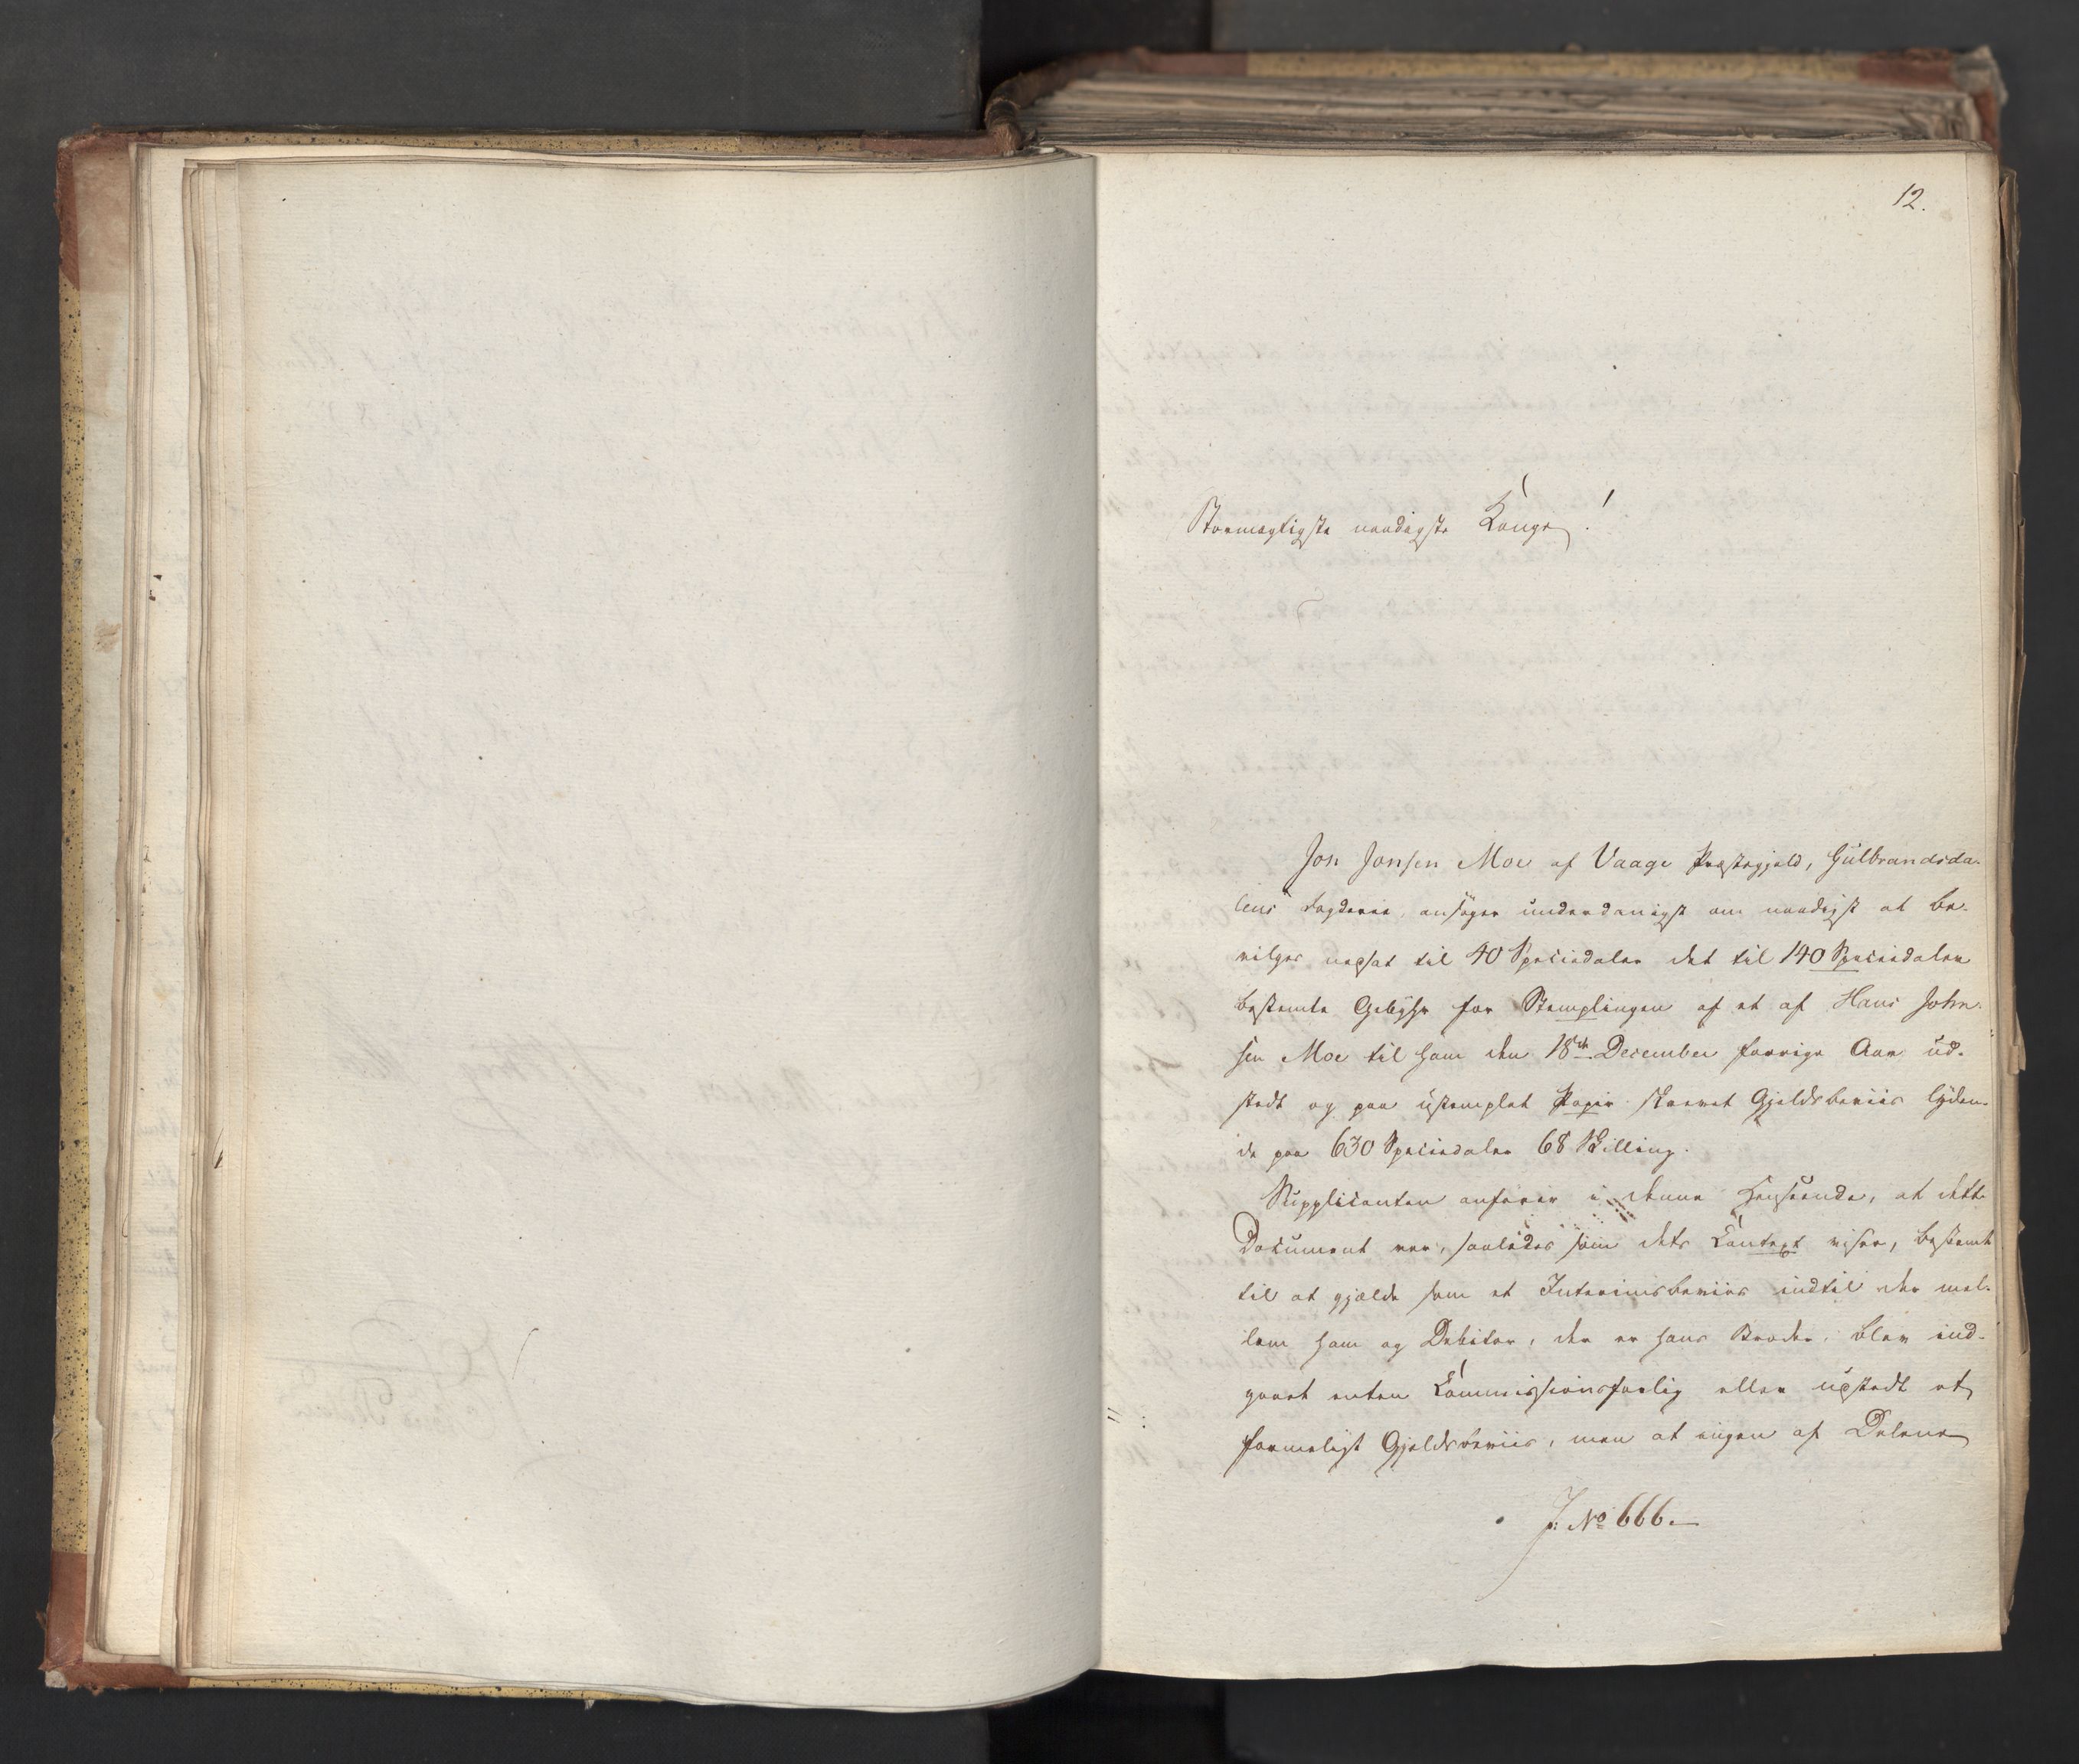 12.
Stormægtigste naadigste Konge!
Jon Jonsen Moe af Vaage Præstegjeld, Gulbrandsda-
lens Fogderie, ansøger underdanigst om naadigst at be-
vilges nedsat til 40 Speciedaler det til 140 Speciedaler
bestemte Gebÿhr for Stemplingen af et af Hans John-
sen Moe til ham den 18de December forrige Aar ud-
stedt og paa ustemplet Papir skrevet Gjeldsbeviis lyden-
de paa 630 Speciedaler 68 Skilling.
Supplicanten anfører i denne Henseende, at dette
Document var, saaledes som dets Context viser, bestemt
til at gjælde som et Interimsbeviis indtil der mel-
lem ham og Debitor, der er hans Broder, blev ind-
gaaet enten Commissionsforlig eller udstedt et
formeligt Gjeldsbeviis, men at ingen af Delene
J: No 666.